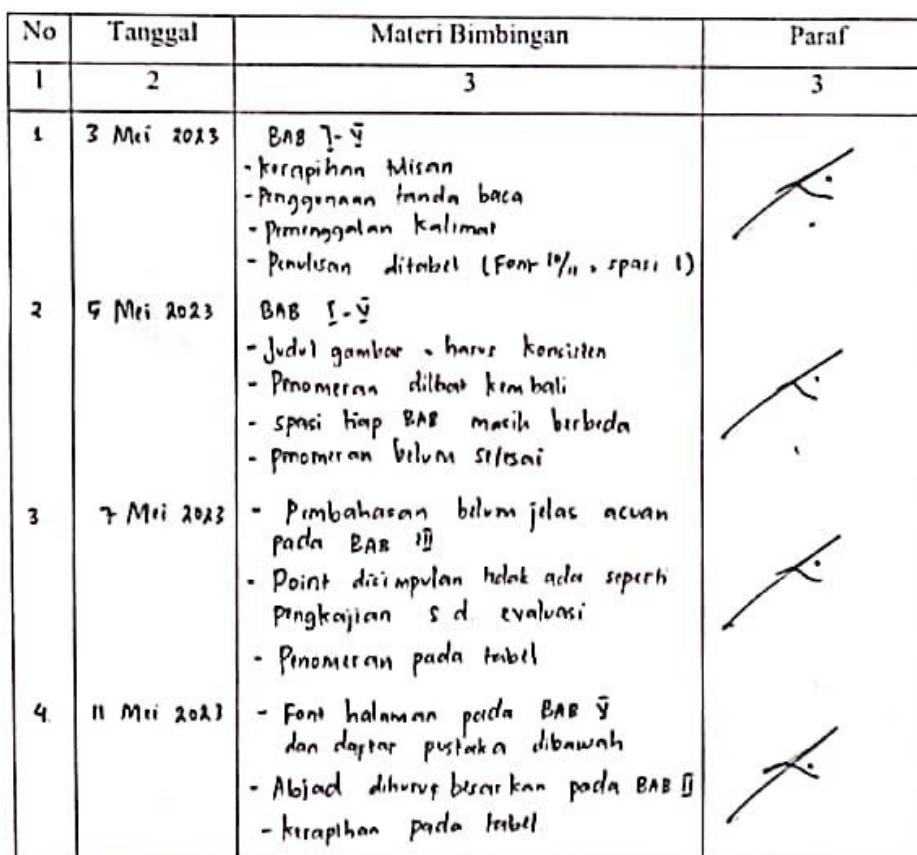 No Tanggal Materi Bimbingan Paraf
1 2 3 3
1 3 Mei 2023 BAB I-V
- kerapihan tulisan
- Penggunaan tanda baca
- Pemenggalan kalimat
- Penulisan ditabel (Font 10/11, spasi 1)
2 5 Mei 2023 BAB I-V
- Judul gambar, harus konsisten
- Penomeran dilihat kembali
- spasi tiap BAB masih berbeda
- penomeran belum selesai
3 7 Mei 2023 - Pembahasan belum jelas acuan
pada BAB III
- Point disimpulan tidak ada seperti
pengkajian s d evaluasi
- Penomeran pada tabel
4. 11 Mei 2023 - Font halaman pada BAB V
dan daftar pustaka dibawah
- Abjad dihuruf besarkan pada BAB II
- kerapihan pada tabel